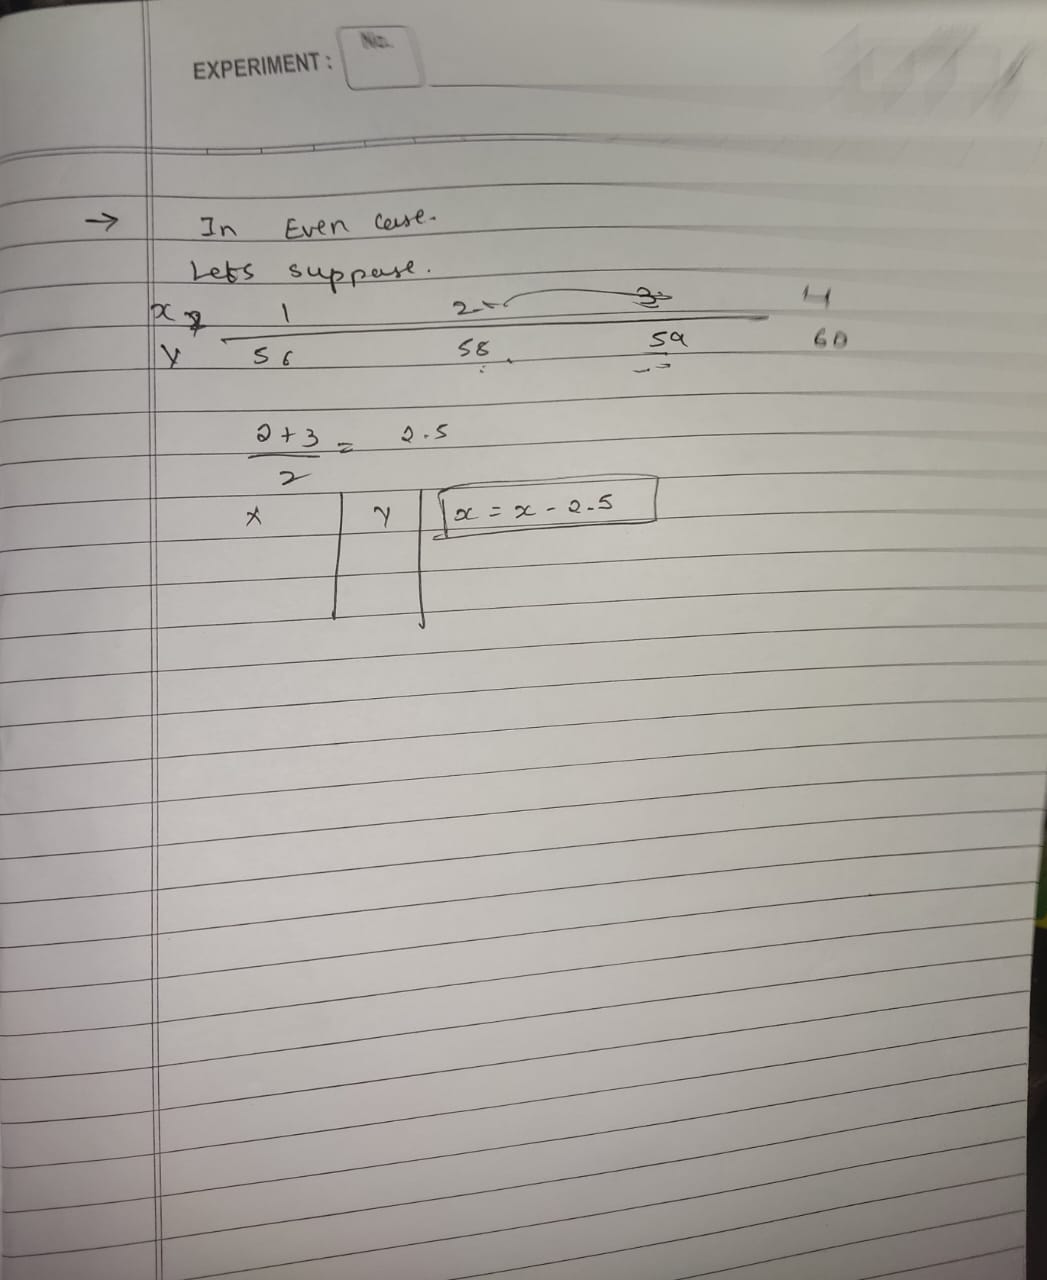 EXPERIMENT : No.
→ In Even case.
Lets suppose.
x 1 2 3 4
y 56 58 59 60
2+3
— = 2.5
2
x y x = x - 2.5